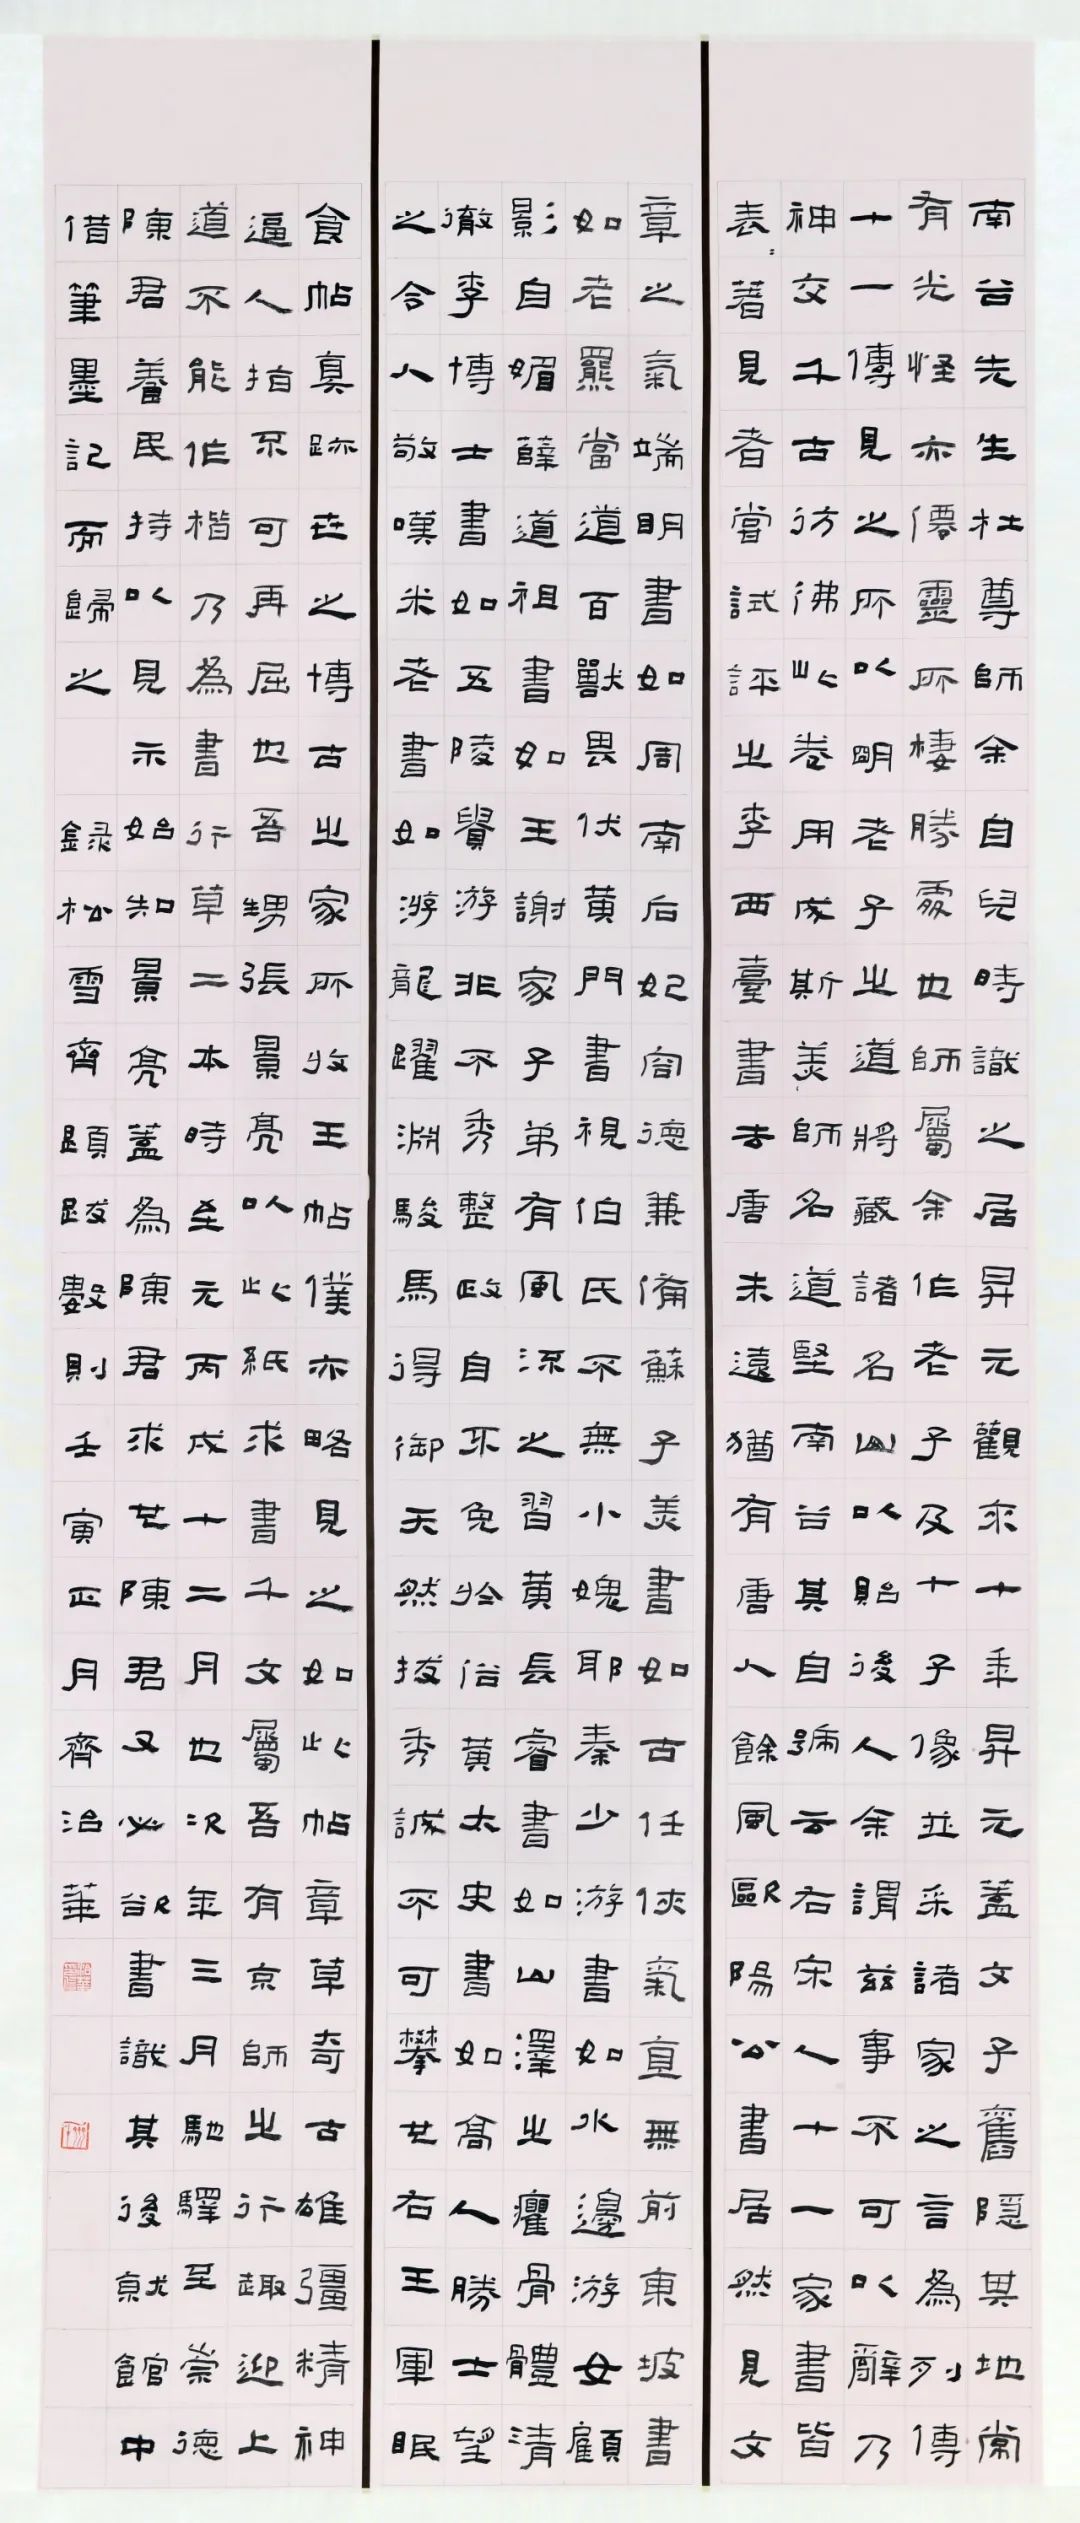 南谷先生杜尊師余自兒時識之居昇元觀來十年昇元蓋文子舊隱其地常
有光怪亦僊靈所棲勝處也師屬余作老子及十子像並采諸家之言為列傳
十一傳見之所以明老子之道將藏諸名山以貽後人余謂茲事不可以辭乃
神交千古彷彿此卷用成斯美師名道堅南谷其自號云右宋人十一家書皆
表〻著見者嘗試評之李西臺書去唐未遠猶有唐人餘風歐陽公書居然見文
章之氣端明書如周南后妃容德兼備蘇子美書如古任俠氣直無前東坡書
如老羆當道百獸畏伏黃門書視伯氏不無小媿耶秦少游書如水邊游女顧
影自媚薛道祖書如王謝家子弟有風流之習黃長睿書如山澤之癯骨體清
徹李博士書如五陵貴游非不秀整政自不免於俗黃太史書如高人勝士望
之令人敬嘆米老書如游龍躍淵駿馬得御天然拔秀誠不可攀也右王軍眠
食帖真跡在之博古之家所收王帖僕亦略見之如此帖章草奇古雄彊精神
逼人拍不可再屈也吾甥張景亮以此紙求書千文屬吾有京師之行趣迎上
道不能作楷乃為書行草二本時至元丙戌十二月也次年三月馳驛至崇德
陳君養民持以見示始知景亮蓋為陳君求也陳君又必欲書識其後就館中
借筆墨記而歸之 錄松雪齊題跋數則壬寅正月齊治華